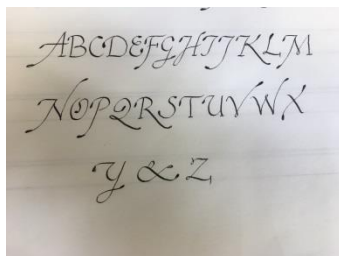 ABCDEFGHIJKLM
NOPQRSTUVWX
Y & Z